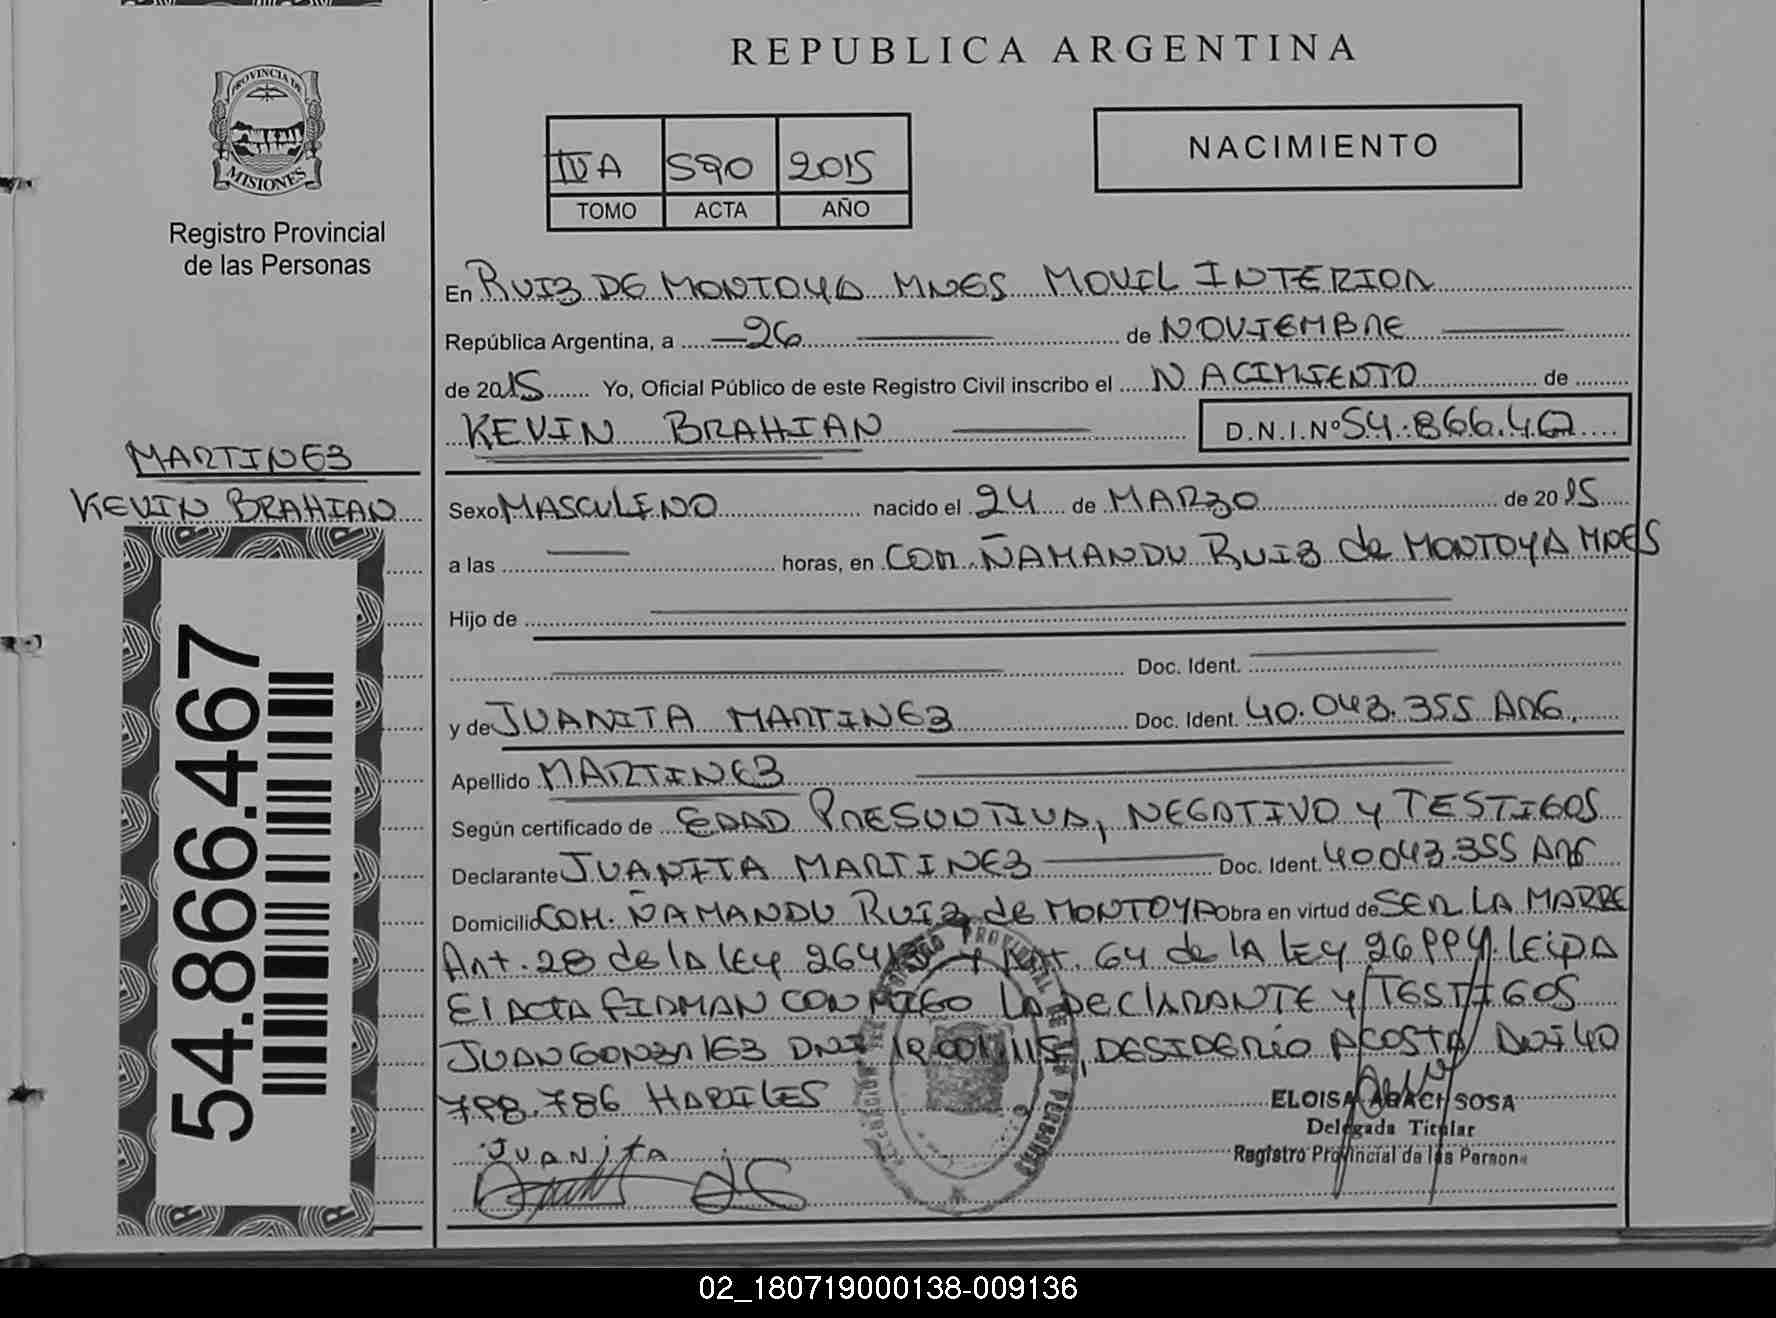 REPUBLICA ARGENTINA
PROVINCIA DE
MISIONES
Registro Provincial
de las Personas
IVA 590 2015
TOMO ACTA AÑO
NACIMIENTO
En RUIZ DE MONTOYA MNES MOVIL INTERIOR
República Argentina, a 26 de NOVIEMBRE
de 2015 Yo, Oficial Público de este Registro Civil inscribo el NACIMIENTO de
KEVIN BRAHIAN D.N.I.Nº 54.866.467
MARTINEZ
KEVIN BRAHIAN
Sexo MASCULINO nacido el 24 de MARZO de 2015
a las horas, en COM. ÑAMANDU RUIZ de MONTOYA MNES
Hijo de
Doc. Ident.
y de JUANITA MARTINEZ Doc. Ident. 40.043.355 ARG.
Apellido MARTINEZ
Según certificado de EDAD PRESUNTIVA, NEGATIVO Y TESTIGOS
Declarante JUANITA MARTINEZ Doc. Ident. 40.043.355 ARG
Domicilio COM. ÑAMANDU RUIZ de MONTOYA Obra en virtud de SER LA MADRE
Art. 28 de la LEY 26413 y Art. 64 de la LEY 26994. LEIDA
El ACTA FIRMAN CON MIGO LA DECLARANTE Y TESTIGOS
JUAN GONZALEZ DNI DESIDERIO ACOSTA DNI 40
798.786 HABILES
JUANITA
ELOISA ARACI SOSA
Delegada Titular
Registro Provincial de las Persona
54.866.467
02_180719000138-009136